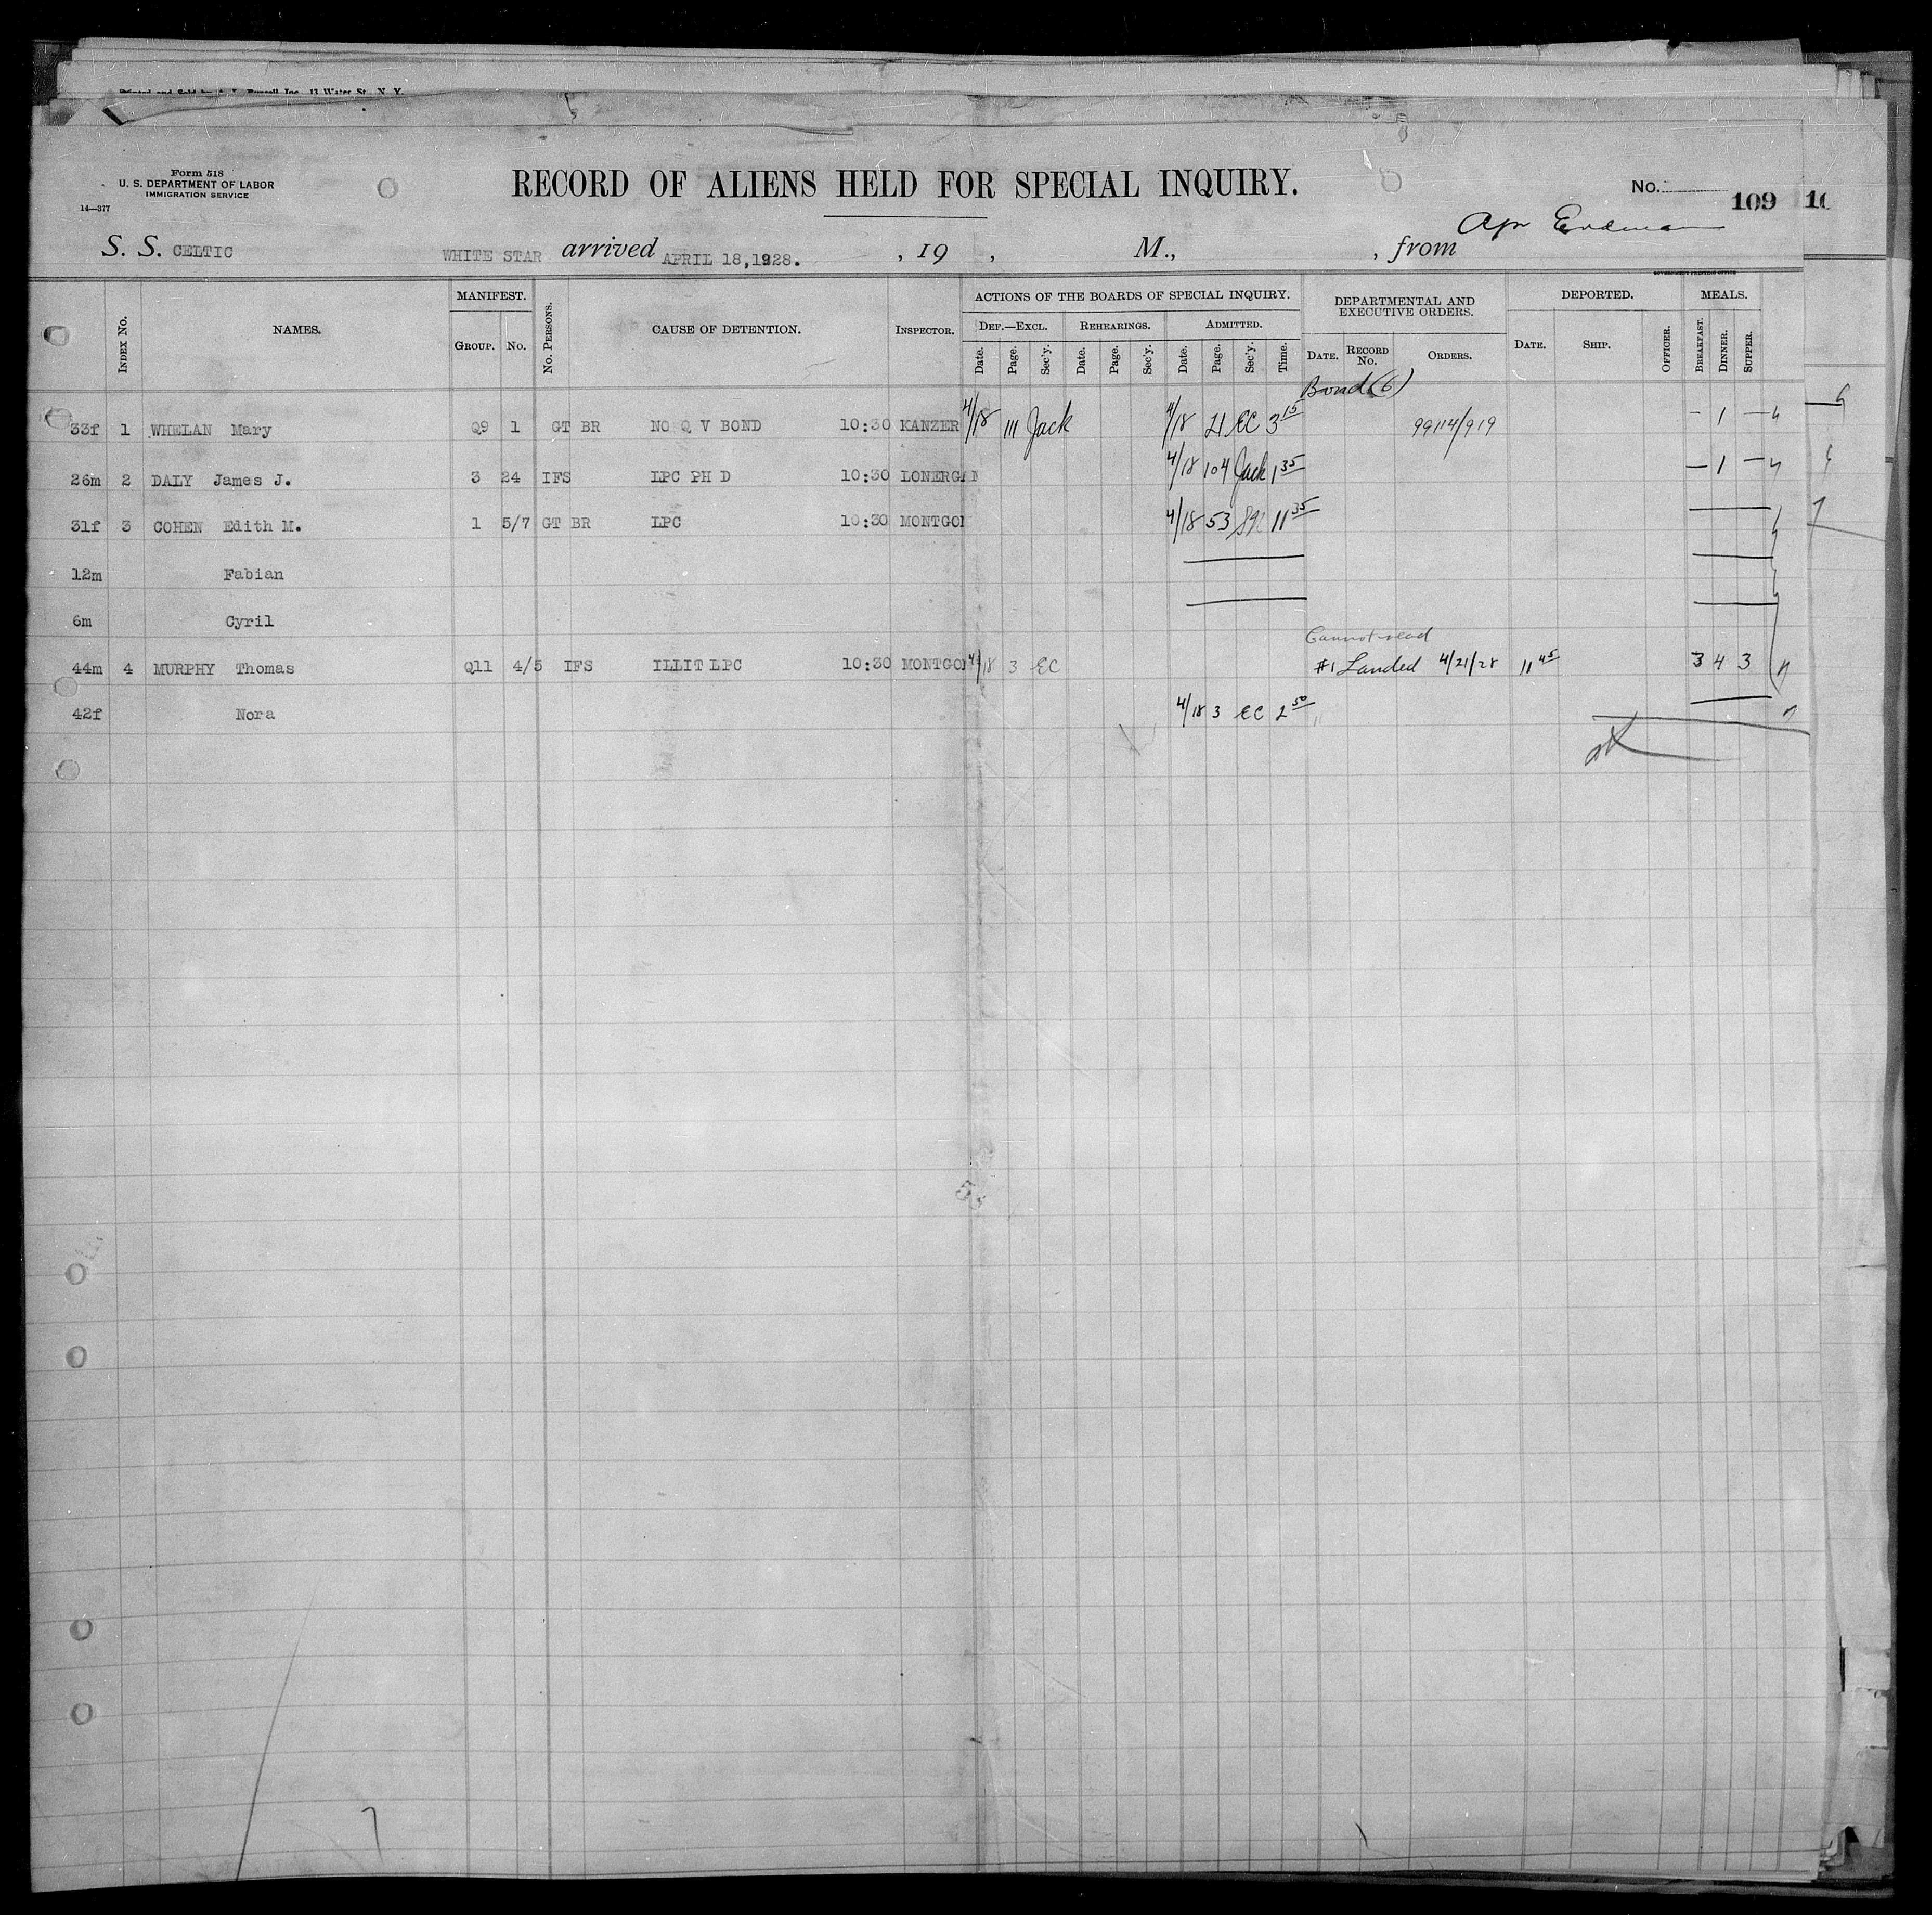 Printed and Sold by Russell Inc. 13 Water St. N. Y.
Form 518
U. S. DEPARTMENT OF LABOR
IMMIGRATION SERVICE
14—377
RECORD OF ALIENS HELD FOR SPECIAL INQUIRY.
No. 109
S. S. CELTIC WHITE STAR arrived APRIL 18,1928. , 19 , M., , from
GOVERNMENT PRINTING OFFICE
INDEX No. NAMES. MANIFEST. GROUP. No. No. PERSONS. CAUSE OF DETENTION. INSPECTOR. ACTIONS OF THE BOARDS OF SPECIAL INQUIRY. DEPARTMENTAL AND EXECUTIVE ORDERS. DEPORTED. MEALS.
DEF.—EXCL. REHEARINGS. ADMITTED.
Date. Page. Sec'y. Date. Page. Sec'y. Date. Page. Sec'y. Time. DATE. RECORD No. ORDERS. DATE. SHIP. OFFICER. BREAKFAST. DINNER. SUPPER.
Bond (6)
33f 1 WHELAN Mary Q9 1 GT BR NO Q V BOND 10:30 KANZER 4/18 111 Jack 4/18 21 EC 3 15 99114/919 — 1 —
26m 2 DALY James J. 3 24 IFS LPC PH D 10:30 LONERGAN 4/18 104 Jack 1 35 — 1 —
31f 3 COHEN Edith M. 1 5/7 GT BR LPC 10:30 MONTGOM 4/18 53 11 35
12m Fabian
6m Cyril
Cannot read
44m 4 MURPHY Thomas Q11 4/5 IFS ILLIT LPC 10:30 MONTGOM 4/18 3 EC #1 Landed 4/21/28 11 45 3 4 3
42f Nora 4/18 3 EC 2 50